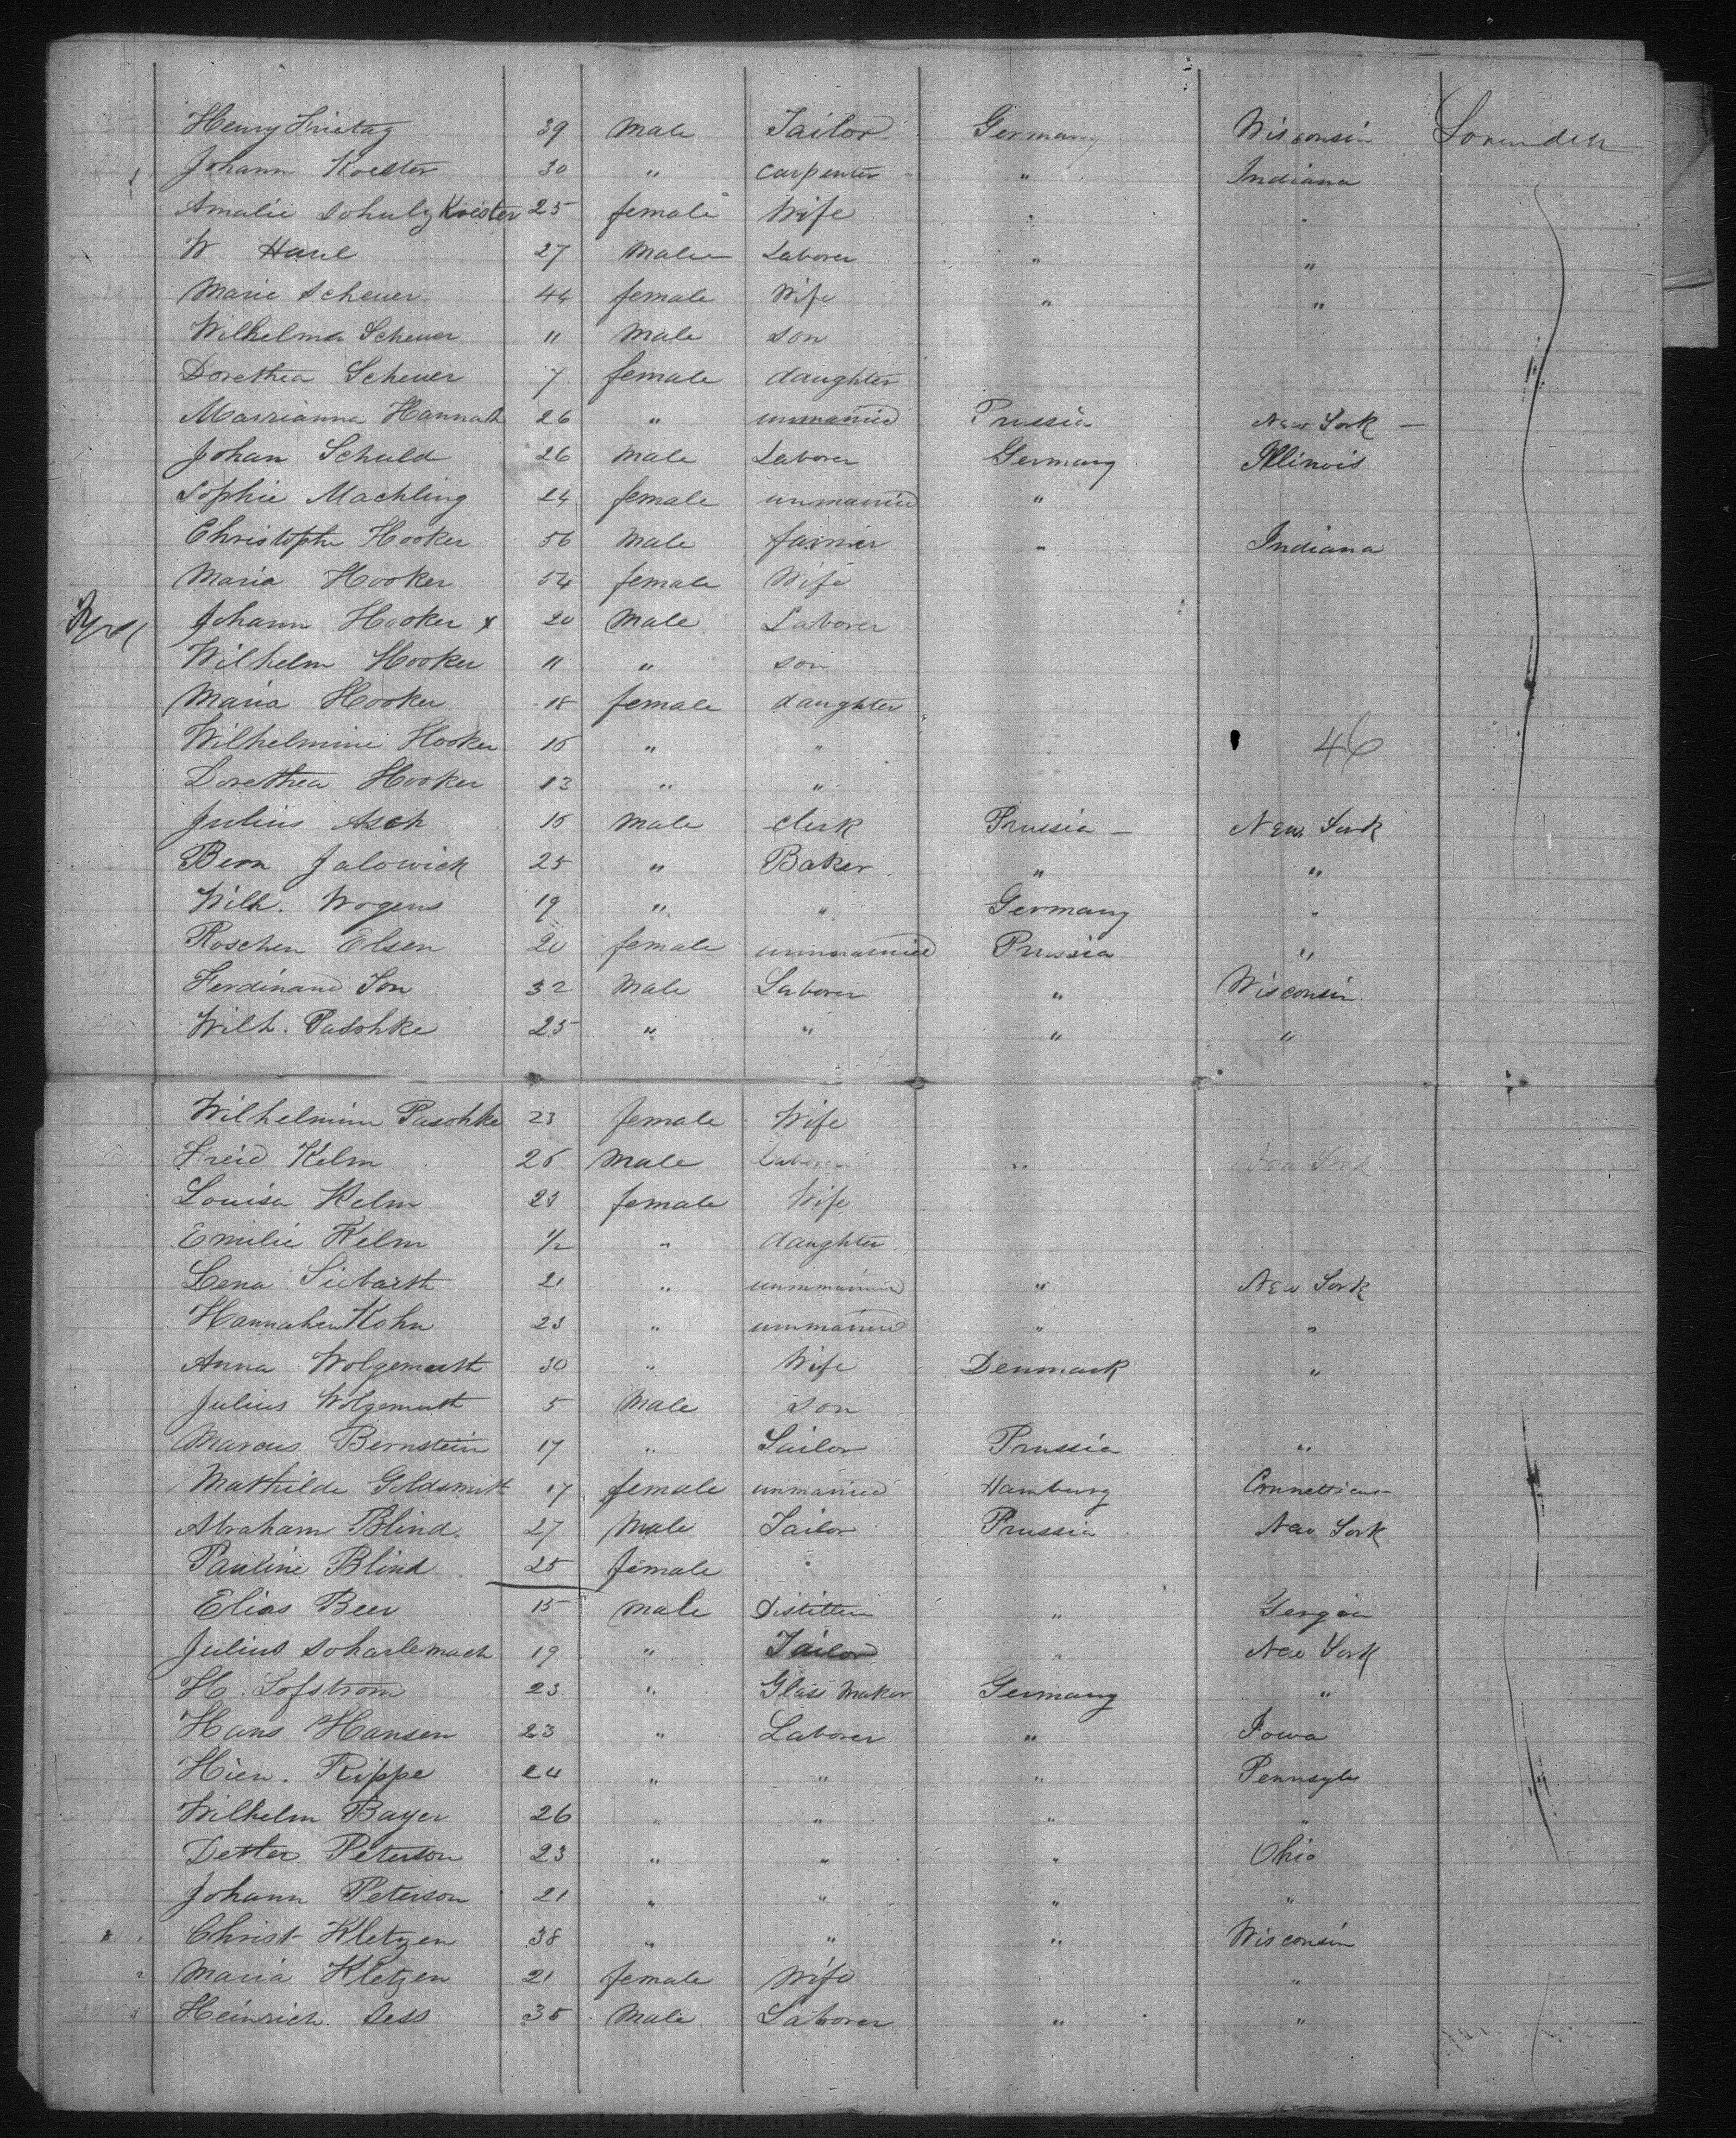 Henry Frietag 39 Male Tailor Germany Wisconsin
Johann Koester 30 " carpenter " Indiana
Amalie Schulz Koester 25 female Wife " "
W Haul 27 Male Laborer " "
Marie Scheuer 44 female Wife " "
Wilhelma Scheuer 11 Male son
Dorethea Scheuer 7 female daughter
Marrianna Hannath 26 " unmarried Prussia New York —
Johan Schuld 26 Male Laborer Germany Illinois
Sophie Machling 24 female unmarried "
Christophe Hooker 56 Male farmer " Indiana
Maria Hooker 54 female Wife
Johann Hooker x 20 Male Laborer
Wilhelm Hooker 11 " son
Maria Hooker 18 female daughter
Wilhelmine Hooker 15 " " 46
Dorethea Hooker 13 " "
Julius Asch 15 Male clerk Prussia — New York
Bern Jalowick 25 " Baker " "
Wilh. Wogens 19 " " Germany "
Roschen Elsen 20 female unmarried Prussia "
Ferdinand Son 32 Male Laborer " Wisconsin
Wilh. Paschke 25 " " " "
Wilhelmine Paschke 23 female Wife
Fried Kelm 26 Male Laborer " New York
Louisa Kelm 23 female Wife
Emilie Kelm 1/2 " daughter
Lena Siebarth 21 " unmarried " New York
Hannahen Kohn 23 " unmarried " "
Anna Wolgemuth 30 " Wife Denmark "
Julius Wolgemuth 5 Male son
Marcus Bernstein 17 " Tailor Prussia "
Mathilde Goldsmith 17 female unmarried Hamburg
Abraham Blind. 27 Male Tailor Prussia New York
Pauline Blind 25 female
Elias Beer 15 male "
Julius Scharlemach 19 " Tailor " New York
H. Lofstrom 23 " Glass Maker Germany "
Hans Hansen 23 " Laborer " Iowa
Hien. Rippe 24 " " " Pennsylv
Wilhelm Bayer 26 " " " "
Detler Peterson 23 " " " Ohio
Johann Peterson 21 " " " "
Christ Kletzen 38 " " " Wisconsin
Maria Kletzen 21 female Wife "
Heinrich. Dess 35 Male Laborer " "